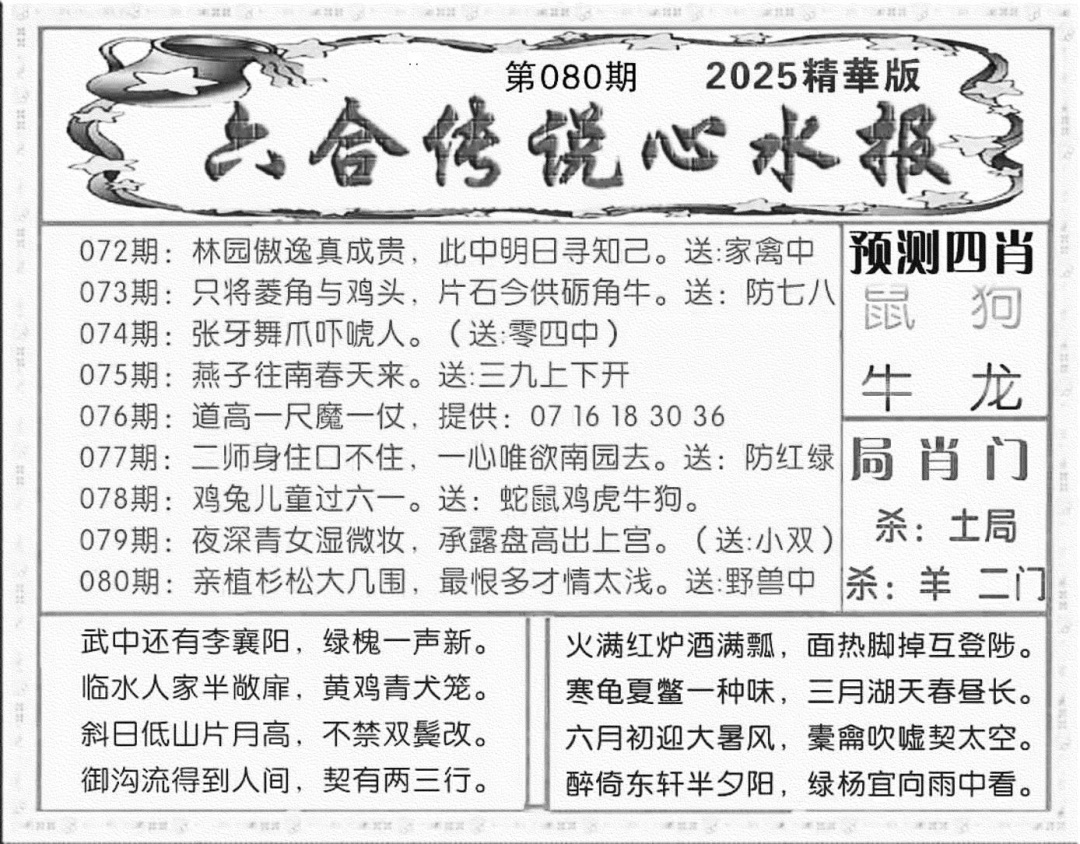 第080期 2025精華版
六合传说心水报
072期：林园傲逸真成贵，此中明日寻知己。送:家禽中
073期：只将菱角与鸡头，片石今供砺角牛。送：防七八
074期：张牙舞爪吓唬人。（送:零四中）
075期：燕子往南春天来。送:三九上下开
076期：道高一尺魔一仗，提供：07 16 18 30 36
077期：二师身住口不住，一心唯欲南园去。送：防红绿
078期：鸡兔儿童过六一。送：蛇鼠鸡虎牛狗。
079期：夜深青女湿微妆，承露盘高出上宫。（送:小双）
080期：亲植杉松大几围，最恨多才情太浅。送:野兽中
预测四肖
鼠 狗
牛 龙
局肖门
杀：土局
杀：羊 二门
武中还有李襄阳，绿槐一声新。
临水人家半敞扉，黄鸡青犬笼。
斜日低山片月高，不禁双鬓改。
御沟流得到人间，契有两三行。
火满红炉酒满瓢，面热脚掉互登陟。
寒龟夏鳖一种味，三月湖天春昼长。
六月初迎大暑风，橐龠吹嘘契太空。
醉倚东轩半夕阳，绿杨宜向雨中看。